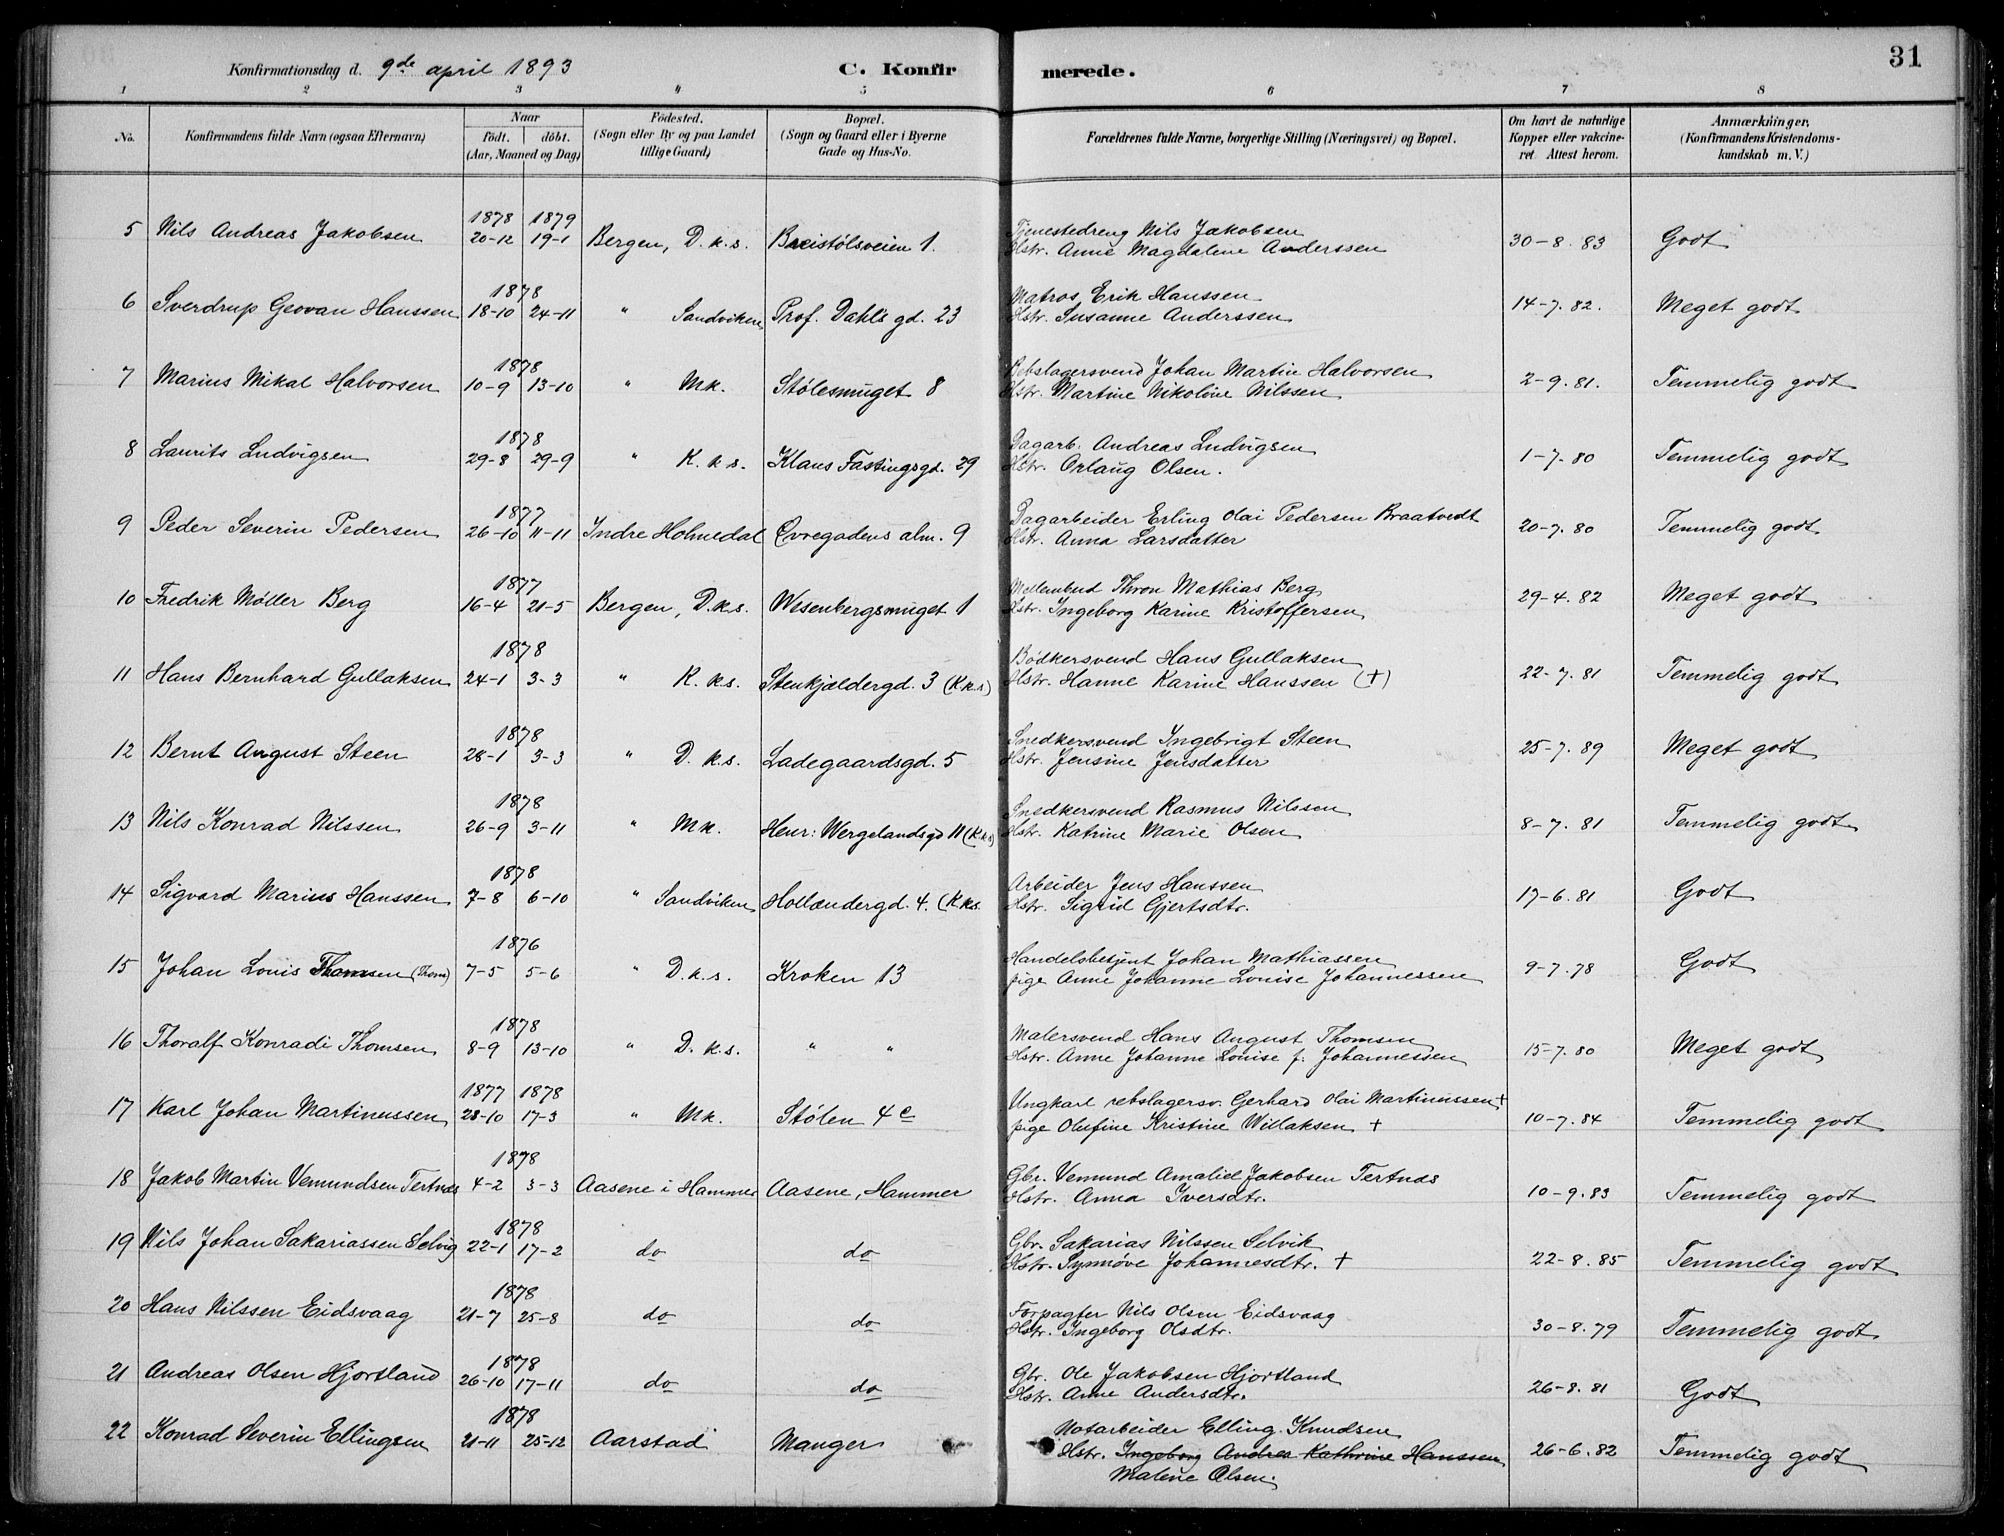 Konfirmationsdag d. 9de april 1893 C. Konfirmerede. 31
1 2 3 4 5 6 7 8
No. Konfirmandens fulde Navn (ogsaa Efternavn) Naar født. døbt. (Aar, Maaned og Dag) Fødested. (Sogn eller By og paa Landet tillige Gaard) Bopæl. (Sogn og Gaard eller i Byerne Gade og Hus-No. Forældrenes fulde Navne, borgerlige Stilling (Næringsvei) og Bopæl. Om havt de naturlige Kopper eller vakcineret. Attest herom. Anmærkninger. (Konfirmandens Kristendomskundskab m. V.)
1878 1879 Tjenestedreng Nils Jakobsen
5 Nils Andreas Jakobsen 20-12 19-1 Bergen, D.k.s. Breistølsveien 1. Hstr. Anne Magdalene Anderssen 30-8.83 Godt
1878 Matros Erik Hanssen
6 Sverdrup Geovan Hanssen 18-10 24-11 " Sandviken Prof. Dahls gd. 23 Hstr. Susanne Anderssen 14-7.82. Meget godt
1878 Rebslagersvend Johan Martin Halvorsen
7 Marius Mikal Halvorsen 10-9 13-10 " Mk. Stølesmuget 8 Hstr. Martine Nikoline Nilssen 2-9.81. Temmelig godt
1878 Dagarb. Andreas Ludvigsen
8 Laurits Ludvigsen 29-8 29-9 " K.k.s. Klaus Fastingsgd. 29 Hstr. Orlaug Olsen. 1-7.80 Temmelig godt
1877 Dagarbeider Erling Olai Pedersen Braatvedt
9 Peder Severin Pedersen 26-10 11-11 Indre Holmedal Øvregadens alm. 9 Hstr. Anna Larsdatter 20-7.80 Temmelig godt
1877 Mellembud Thron Mathias Berg
10 Fredrik Møller Berg 16-4 21-5 Bergen, D.k.s. Wesenbergsmuget 1 Hstr. Ingeborg Karine Kristoffersen 29-4.82 Meget godt
1878 Bødkersvend Hans Gullaksen
11 Hans Bernhard Gullaksen 24-1 3-3 " K.k.s. Stenkjældergd. 3 (K.k.s) Hstr. Hanne Karine Hanssen (+) 22-7.81 Temmelig godt
1878 Snedkersvend Ingebrigt Steen
12 Bernt August Steen 28-1 3-3 " D.k.s. Ladegaardsgd. 5 Hstr. Jensine Jensdatter 25-7.89 Meget godt
1878 Snedkersvend Rasmus Nilssen
13 Nils Konrad Nilssen 26-9 3-11 " Mk. Henr: Wergelandsgd 11 (K.k.s) Hstr. Katrine Marie Olsen 8-7.81 Temmelig godt
1878 Arbeider Jens Hanssen
14 Sigvard Marius Hanssen 7-8 6-10 " Sandviken Hollændergd. 4. (K.k.s. Hstr. Sigrid Gjertsdtr. 17-6.81 Godt
1876 Handelsbetjent Johan Mathiassen
15 Johan Louis Thomsen (Thom) 7-5 5-6 " D.k.s. Kroken 13 pige Anne Johanne Louise Johannessen 9-7.78 Godt
1878 Malersvend Hans August Thomsen
16 Thoralf Konradi Thomsen 8-9 13-10 " D.k.s. " " Hstr. Anne Johanne Louise f. Johannessen 15-7.80 Meget godt
1877 1878 Ungkarl rebslagersv. Gerhard Olai Martinussen +
17 Karl Johan Martinussen 28-10 17-3 " Mk. Stølen 4c pige Olufine Kristine Willaksen + 10-7.84 Temmelig godt
1878 Gbr. Vemund Amalid Jakobsen Tertnæs
18 Jakob Martin Vemundsen Tertnæs 4-2 3-3 Aasene i Hammer Aasene, Hammer Hstr. Anna Iversdtr. 10-9.83 Temmelig godt
1878 Gbr. Sakarias Nilssen Selvik
19 Nils Johan Sakariassen Selvig 22-1 17-2 do do Hstr. Synnøve Johannesdtr. + 22-8.85 Temmelig godt
1878 Forpagter Nils Olsen Eidsvaag
20 Hans Nilssen Eidsvaag 21-7 25-8 do do Hstr. Ingeborg Olsdtr. 30-8.79 Temmelig godt
1878 Gbr. Ole Jakobsen Hjortland
21 Andreas Olsen Hjortland 26-10 17-11 do do Hstr. Anne Andersdtr. 26-8.81 Godt
1878 Notarbeider Elling Knudsen
22 Konrad Severin Ellingsen 21-11 25-12 Aarstad Manger Hstr. Ingeborg Andrea Kathrine Hanssen 26-6.82 Temmelig godt
Malene Olsen.